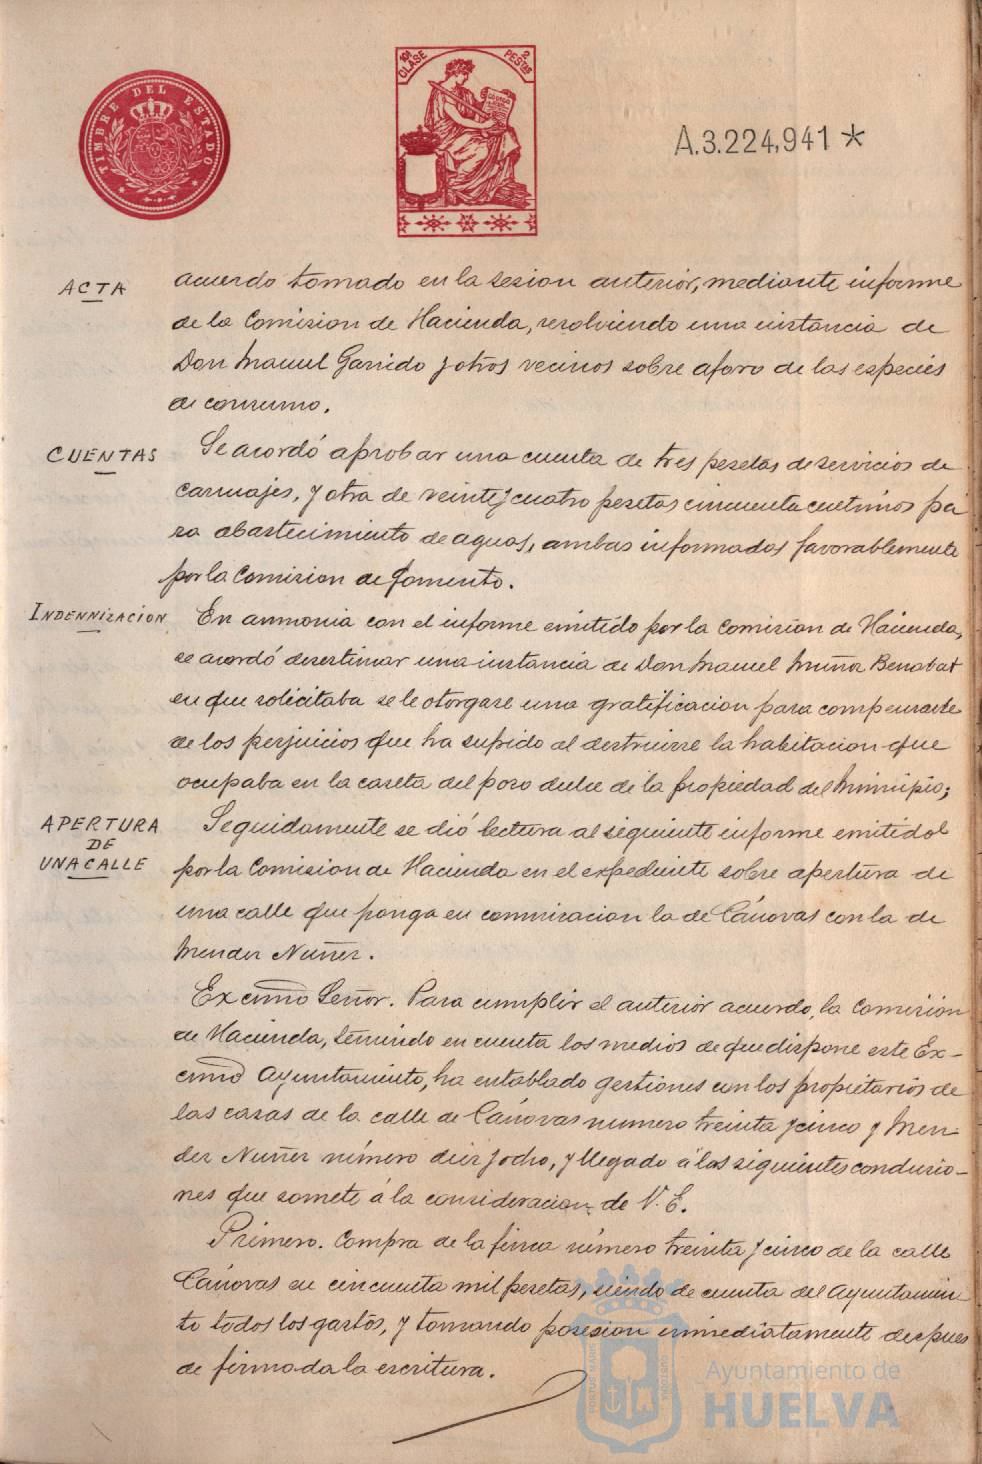 TIMBRE DEL ESTADO
10ª CLASE
2 PESTAS
A.3.224,941 *
ACTA
acuerdo tomado en la sesion anterior, mediante informe
de la Comision de Hacienda, resolviendo una instancia de
Don Manuel Garrido y otros vecinos sobre aforo de las especies
de consumo.
CUENTAS
Se acordó aprobar una cuenta de tres pesetas de servicios de
carruajes, y otra de veinte y cuatro pesetas cincuenta centimos pa
ra abastecimiento de aguas, ambas informadas favorablemente
por la Comision de Fomento.
INDENNIZACIÓN
En armonia con el informe emitido por la Comision de Hacienda,
se acordó desestimar una instancia de Don Manuel Muñoz Benabat
en que solicitaba se le otorgase una gratificacion para compensarle
de los perjuicios que ha sufrido al destruirse la habitacion que
ocupaba en la caseta del pozo dulce de la propiedad del Municipio;
APERTURA
DE
UNA CALLE
Seguidamente se dió lectura al siguiente informe emitido
por la Comision de Hacienda en el expediente sobre apertura de
una calle que ponga en comunicacion la de Cánovas con la de
Mendez Nuñez.
Excmo Señor. Para cumplir el anterior acuerdo, la Comision
de Hacienda, teniendo en cuenta los medios de que dispone este Ex-
cmo Ayuntamiento, ha entablado gestiones con los propietarios de
las casas de la calle de Cánovas numero treinta y cinco y Men-
dez Nuñez número diez y ocho, y llegado á las siguientes conclusio-
nes que somete á la consideracion de V. E.
Primero. Compra de la finca número treinta y cinco de la calle
Cánovas en cincuenta mil pesetas, siendo de cuenta del Ayuntamien-
to todos los gastos, y tomando posesion inmediatamente despues
de firmada la escritura.
Ayuntamiento de
HUELVA